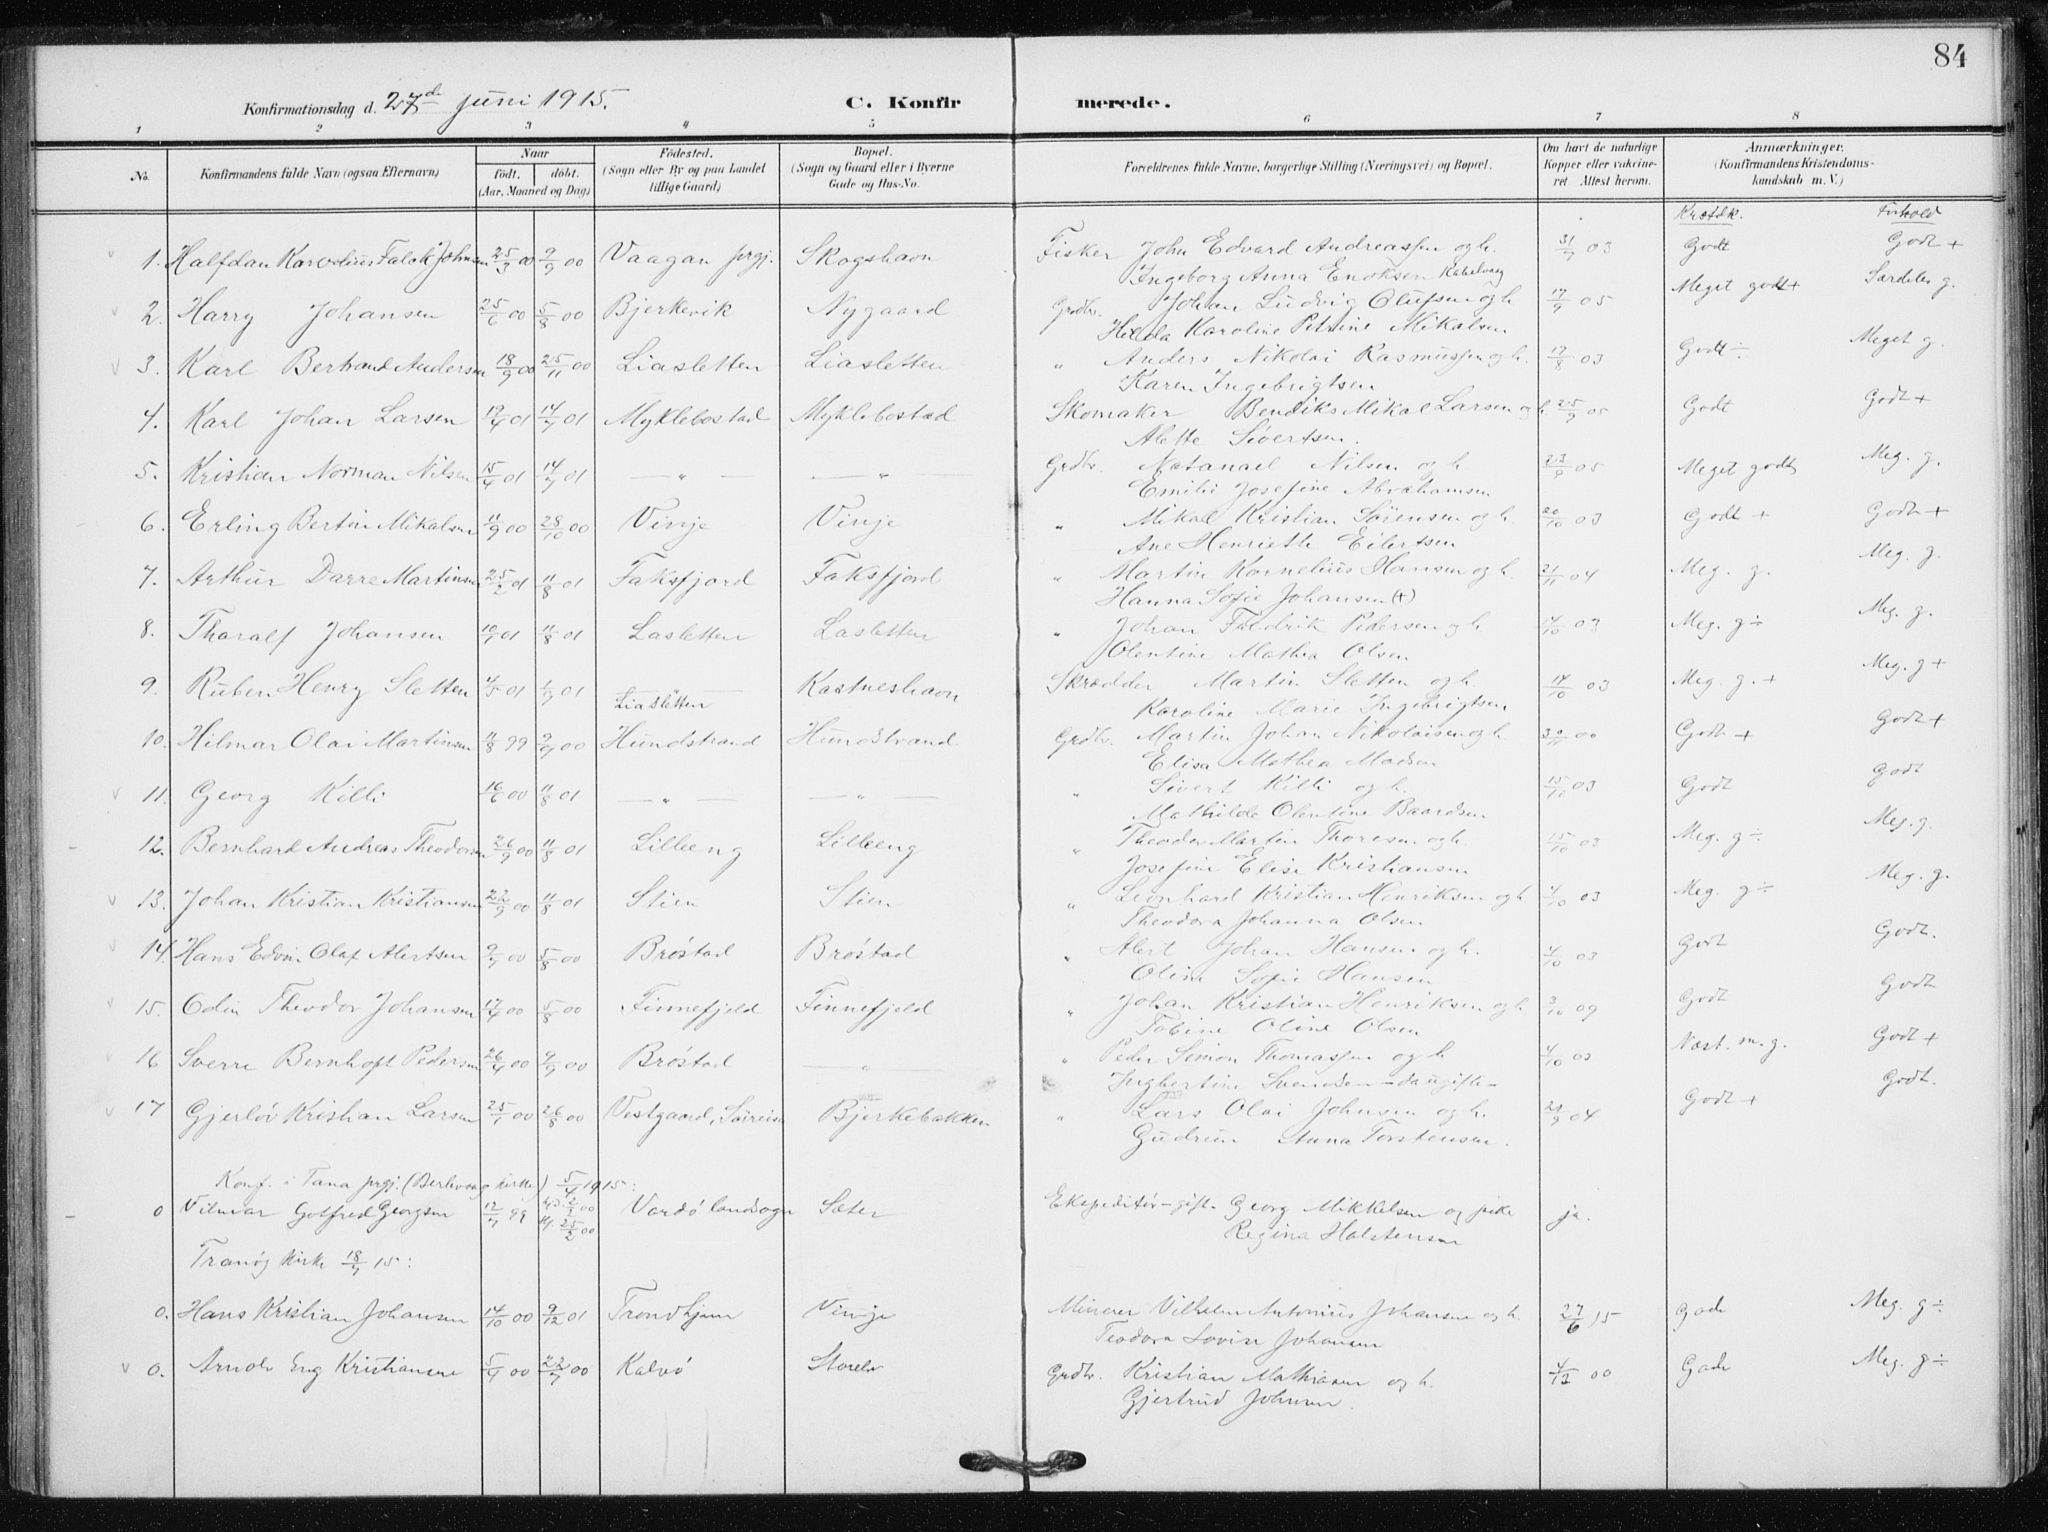 84
Konfirmationsdag d. 27de juni 1915. C. Konfirmerede.
1 2 3 4 5 6 7 8
No. Konfirmandens fulde Navn (ogsaa Efternavn) Naar Födt. döbt. (Aar, Maaned og Dag) Födested. (Sogn eller By og paa Landet tillige Gaard) Bopæl. (Sogn og Gaard eller i Byerne Gade og Hus-No. Forældrenes fulde Navne, borgerlige Stilling (Næringsvei) og Bopæl. Om havt de naturlige Kopper eller vaccineret Attest herom. Anmærkninger. (Konfirmandens Kristendomskundskab m. V.)
Krstdk. Forhold
1. Halfdan Karolius Falck Johnsen 25/3 00 9/9 00 Vaagan prgj. Skogshavn Fisker John Edvard Andreassen og h. 31/7 03 Godt Godt +
Ingeborg Anna Enoksen Kabelvaag
2. Harry Johansen 25/6 00 5/8 00 Bjerkevik Nygaard Grdbr. Johan Ludvig Olufsen og h. 17/9 05 Meget godt + Særdeles g.
Helda Karoline Petrine Mikalsen
3. Karl Bertrand Andersen 18/9 00 25/11 00 Liasletten Liasletten " Anders Nikolai Rasmussen og h. 17/8 03 Godt ÷ Meget g.
Karen Ingebrigtsen
4. Karl Johan Larsen 19/4 01 14/7 01 Myklebostad Myklebostad Skomaker Bendiks Mikal Larsen og h. 25/9 05 Godt Godt +
Alette Sivertsen.
5. Kristian Norman Nilsen 15/4 01 14/7 01 — " — — " — Grdbr. Natanael Nilsen og h. 23/9 05 Meget godt Meg. g.
Emilie Josefine Abrahamsen
6. Erling Bertin Mikalsen 11/9 00 28/10 00 Vinje Vinje " Mikal Kristian Sørensen og h. 20/10 03 Godt + Godt +
Ane Henriette Eilertsen
7. Arthur Darre Martinsen 25/2 01 11/8 01 Faksfjord Faksfjord " Martin Kornelius Hansen og h. 21/11 04 Meg. g. Meg. g.
Hanna Sofie Johansen (+)
8. Tharalf Johansen 10/7 01 11/8 01 Lasletten Lasletten " Johan Fredrik Pedersen og h. 14/10 03 Meg. g ÷ Meg. g.
Olentine Mathea Olsen
9. Ruben Henry Sletten 4/5 01 1/9 01 Liasletten Kastneshavn Skrædder Martin Sletten og h. 14/10 03 Meg. g. + Meg. g +
Karoline Marie Ingebrigtsen
10. Hilmar Olai Martinsen 11/8 99 9/9 00 Hundstrand Hundstrand Grdbr. Martin Johan Nikolaisen og h. 30/11 00 Godt + Godt +
Elisa Mathea Madsen
11. Georg Killi 16/6 00 11/8 01 — " — — " — " Sivert Killi og h. 15/10 03 Godt Godt
Mathilde Olentine Baardsen
12. Bernhard Andreas Theodorsen 26/9 00 11/8 01 Lilleeng Lilleeng " Theodor Martin Thoresen og h. 15/10 03 Meg. g ÷ Meg. g.
Josefine Elise Kristiansen
13. Johan Kristian Kristiansen 22/9 00 11/8 01 Stien Stien " Leonhard Kristian Henriksen og h 4/10 03 Meg. g ÷ Meg. g.
Theodora Johanna Olsen
14. Hans Edvin Olaf Alertsen 9/7 00 5/8 00 Brøstad Brøstad " Alert Johan Hansen og h. 4/10 03 Godt Godt.
Oline Sofie Hansen
15. Odin Theodor Johansen 17/4 00 5/8 00 Finnefjeld Finnefjeld " Johan Kristian Henriksen og h 3/10 09 Godt Godt
Tobine Oline Olsen
16 Sverre Bernhoft Pedersen 26/4 00 9/9 00 Brøstad — " — " Peder Simon Thomassen og h 4/10 03 Næst. m. g. Godt +
Ingbertine Svendsen – da ugifte –
17 Gjerløv Kristian Larsen 25/7 00 26/8 00 Vestgaard, Sørreisa Bjerkebakken " Lars Olai Johnsen og h. 04 Godt + Godt.
Gudrun Anna Torstensen.
Konf. i Tana prgj. (Berlevaag kirke) 5/4 1915:
0 Vilmar Gotfred Georgsen 12/7 99 00 25/2 00 Vardø landsogn Sæter Ekspeditør – gift – Georg Mikkelsen og pike ja.
Regina Halstensen
Tranøy Kirke 18/7 15:
0. Hans Kristian Johansen 14/10 00 9/12 01 Trondhjem Vinje Minerer Vilhelm Antonius Johansen og h. 27/6 15 Godt Meg. g ÷
Teodora Lovise Johansen
0. Arnold Eng Kristiansen 5/4 00 22/7 00 Kalvø Storelv Grdbr. Kristian Mathiasen og h. 4/12 00 Godt Meg. g ÷
Gjertrud Johnsen.